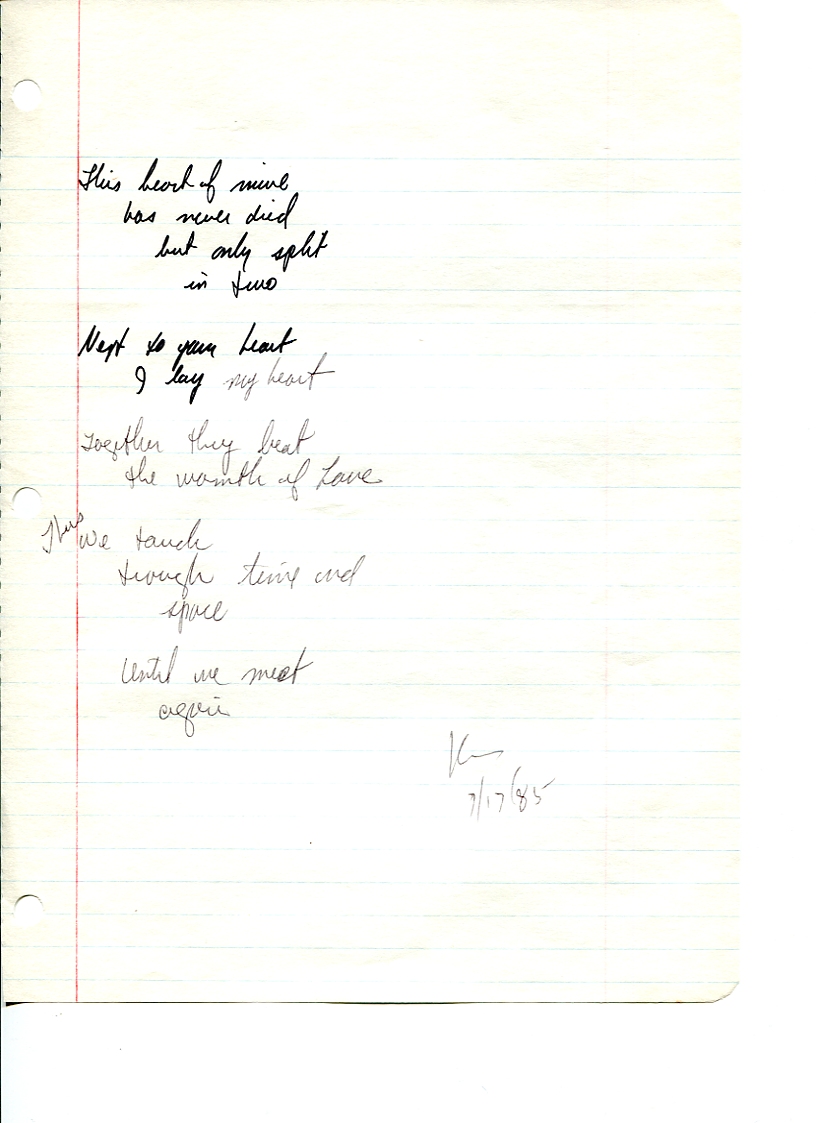 This heart of mine
has never died
but only split
in two
Next to your heart
I lay my heart
Together they beat
the warmth of Love
Thus we touch
trough time and
space
Until we meet
again
7/17/85